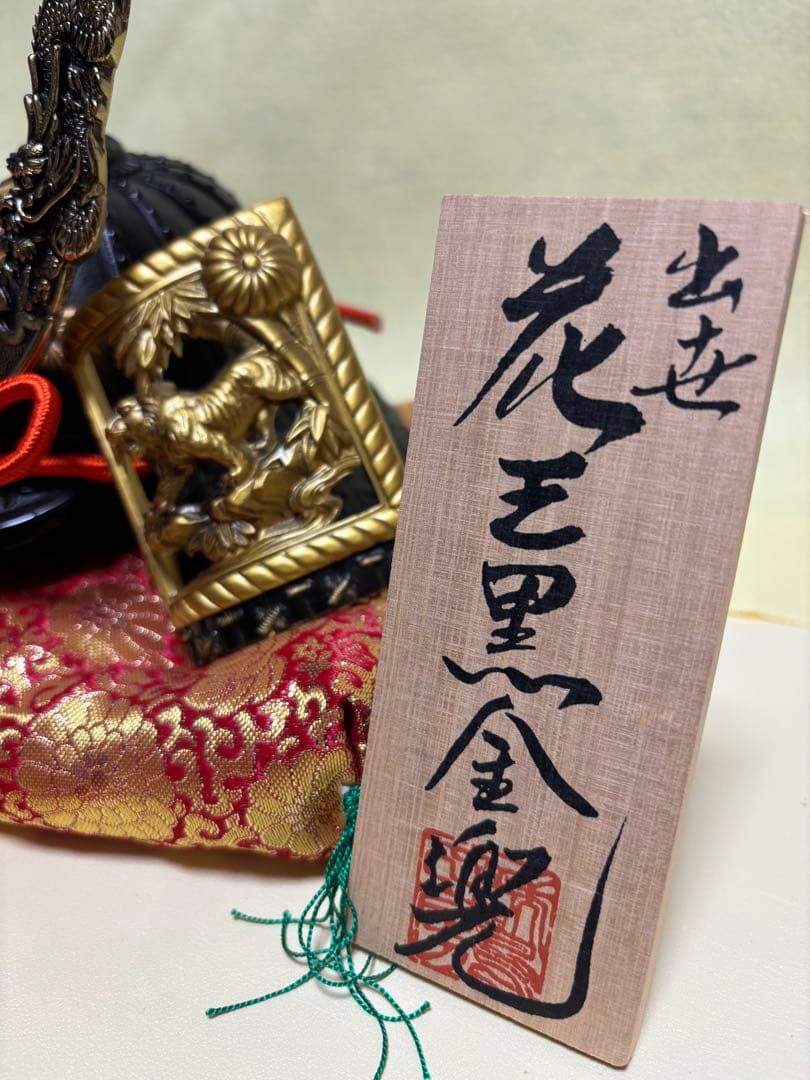 出世
花王黒金兜